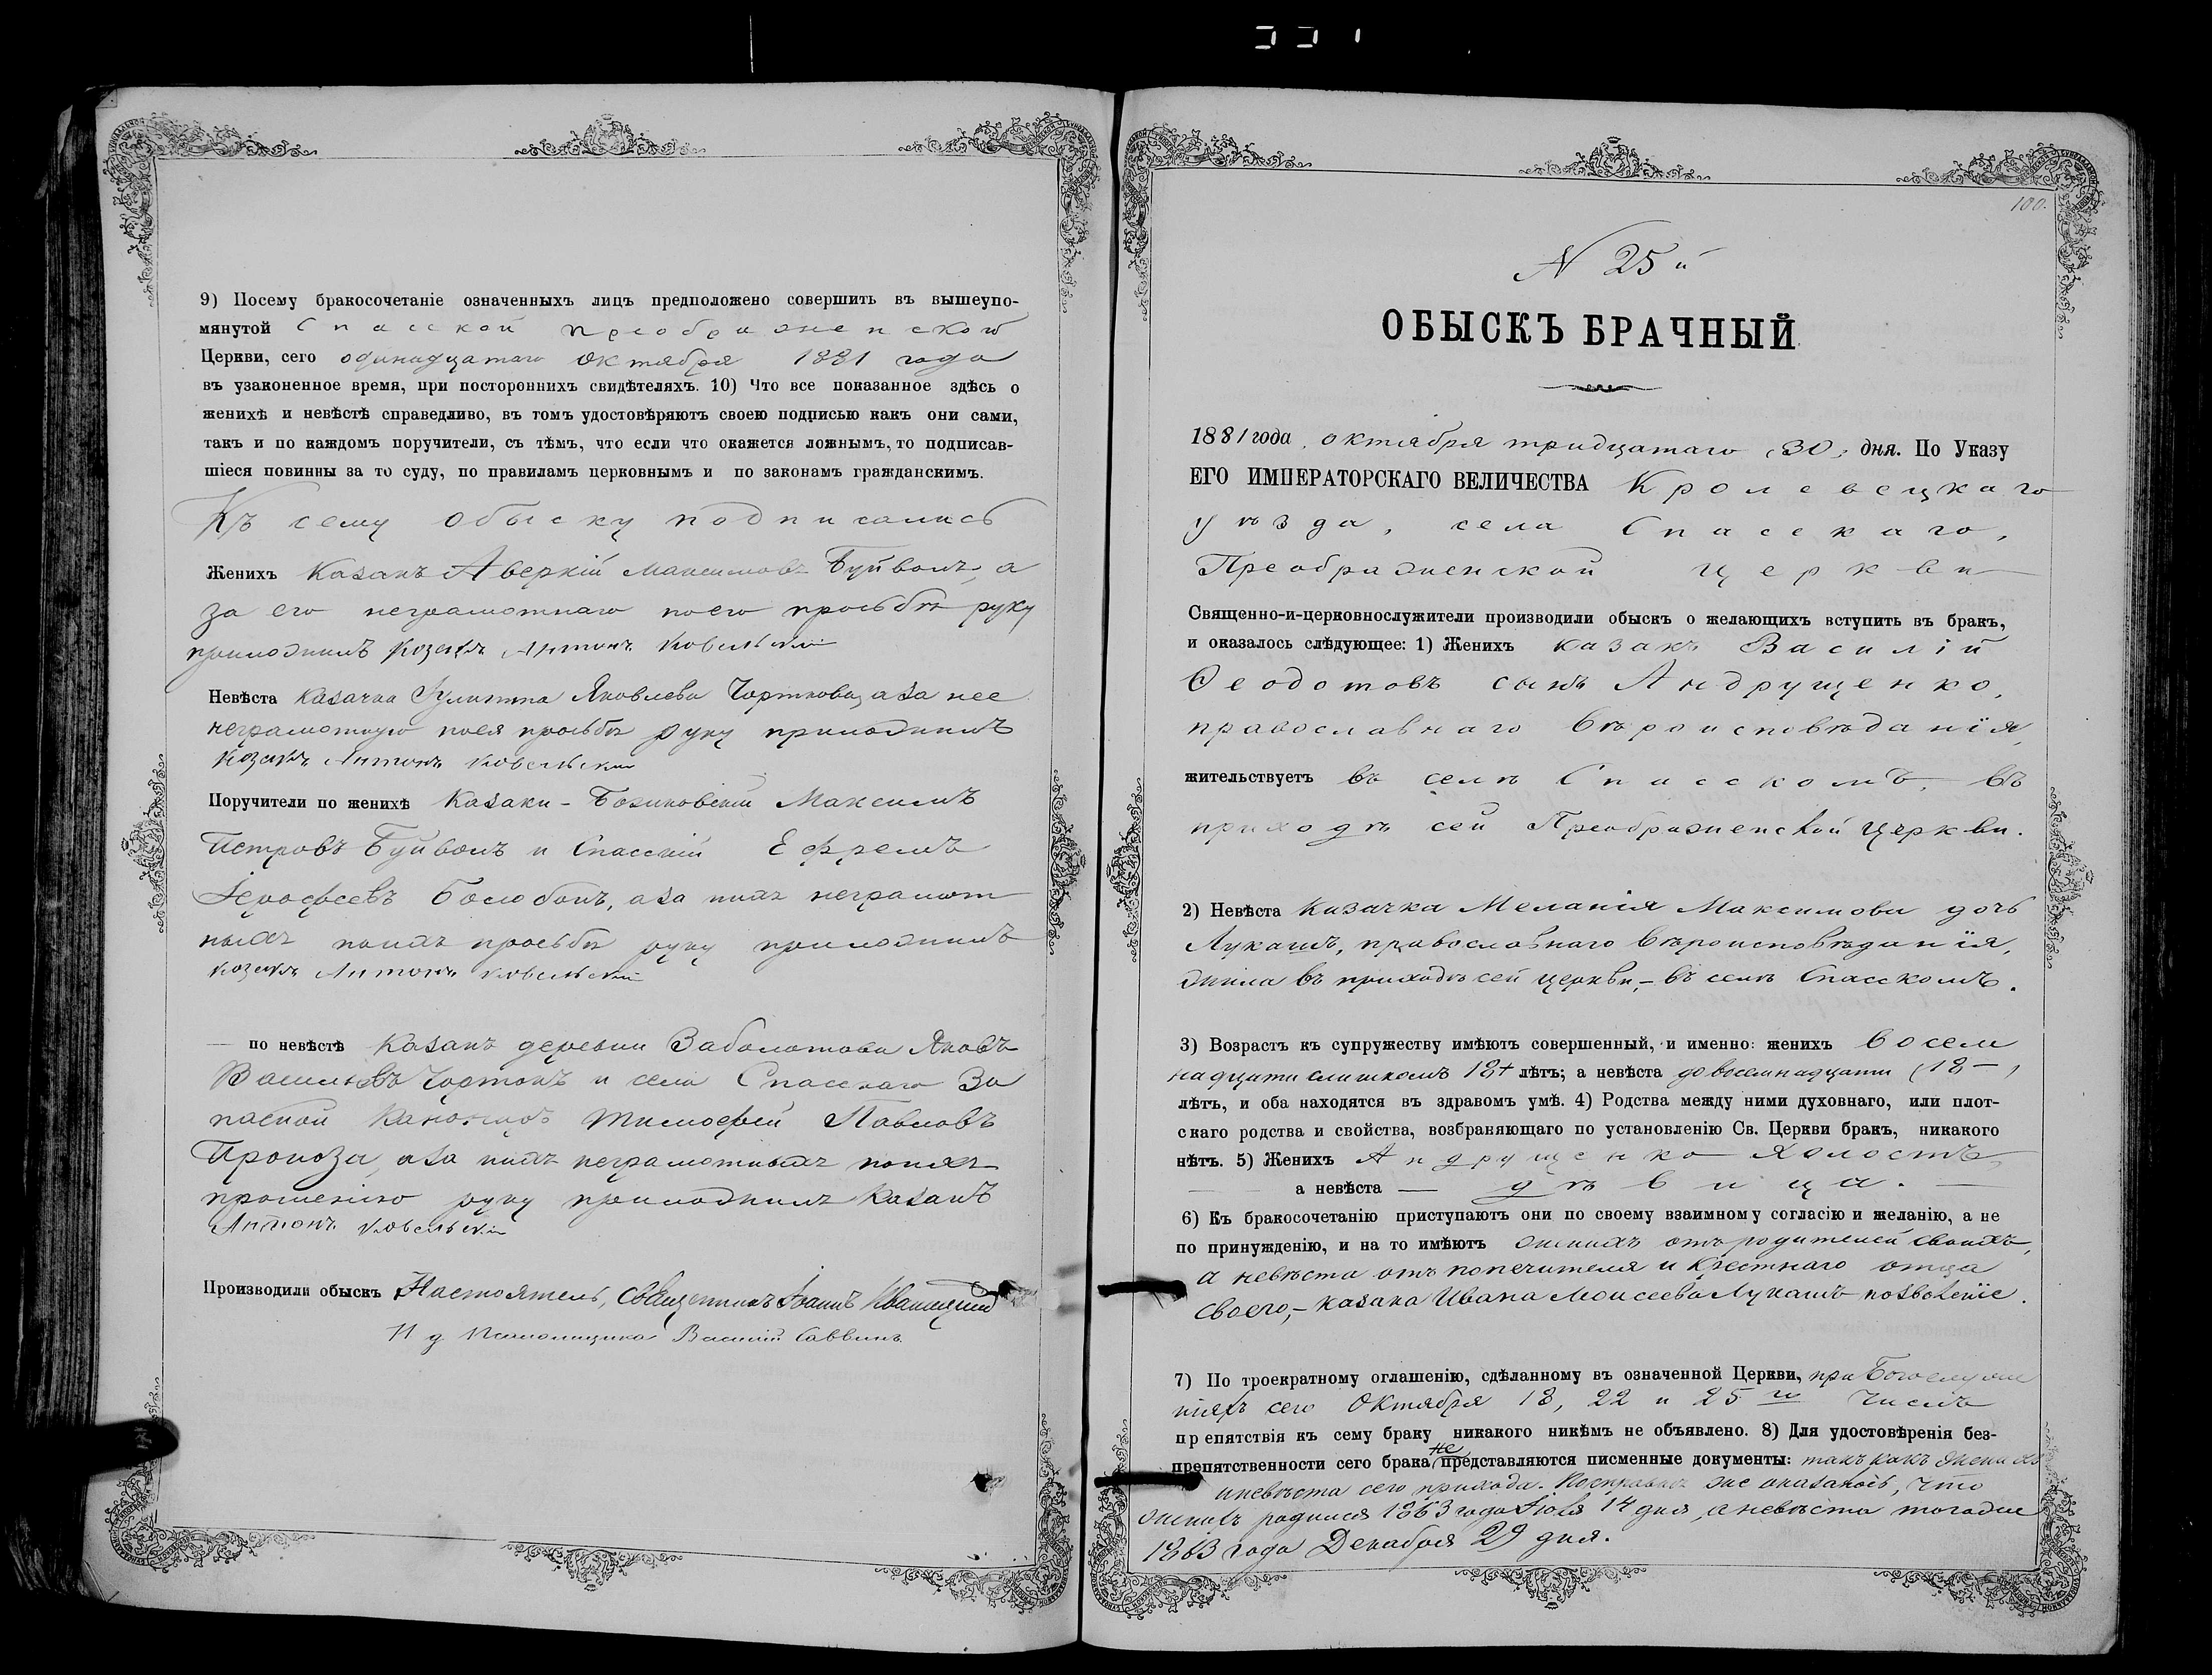 9) Посему бракосочетаніе означенныхъ лицъ предположено совершить въ вышеупо-
мянутой Спасской преображенской
Церкви, сего одинадцатаго октября 1881 года
въ узаконенное время, при постороннихъ свидѣтеляхъ. 10) Что все показанное здѣсь о
женихѣ и невѣстѣ справедливо, въ томъ удостовѣряютъ своею подписью какъ они сами,
такъ и по каждомъ поручители, съ тѣмъ, что если что окажется ложнымъ, то подписав-
шіеся повинны за то суду, по правиламъ церковнымъ и по законамъ гражданскимъ.
Къ сему обыску подписались
Женихъ Казакъ Аверкій Максимовъ Буйволъ, а
за его неграмотнаго по его просьбѣ руку
приложилъ козакъ Антонъ
Невѣста казачка Яковлева а за нее
неграмотную по ея просьбѣ руку приложилъ
козакъ Антонъ
Поручители по женихѣ Казаки - Максимъ
Петровъ Буйволъ и Спасскій Ефремъ
Іерофеевъ а за нихъ неграмот
ныхъ по ихъ просьбѣ руку приложилъ
козакъ Антонъ
по невѣстѣ Казакъ деревни Заболотова Яковъ
Васильевъ и села Спасскаго За
пасной Тимофей Павловъ
а за нихъ неграмотныхъ по ихъ
прошенію руку приложилъ казакъ
Антонъ
Производили обыскъ Настоятель, Священникъ Іоаннъ
И д Псаломщика Василій Саввинъ
100.
N 25й
ОБЫСКЪ БРАЧНЫЙ
1881 года октября тридцатаго (30) дня. По Указу
ЕГО ИМПЕРАТОРСКАГО ВЕЛИЧЕСТВА Кролевецкаго
уѣзда, села Спасскаго,
Преображенской церкви
Священно-и-церковнослужители производили обыскъ о желающихъ вступить въ бракъ,
и оказалось слѣдующее: 1) Женихъ казакъ Василій
Ѳеодотовъ сынъ Андрущенко,
православнаго вѣроисповѣданія,
жительствуетъ въ селѣ Спасскомъ, въ
приходѣ сей Преображенской церкви.
2) Невѣста Казачка Меланія Максимова дочь
Лукашъ, православнаго вѣроисповѣданія,
жила въ приходѣ сей церкви,- въ селѣ Спасскомъ.
3) Возрастъ къ супружеству имѣютъ совершенный, и именно: женихъ восем
надцати слишкомъ 18+ лѣтъ; а невѣста до восемнадцати (18-)
лѣтъ, и оба находятся въ здравомъ умѣ. 4) Родства между ними духовнаго, или плот-
скаго родства и свойства, возбраняющаго по установленію Св. Церкви бракъ, никакого
нѣтъ. 5) Женихъ Андрущенко холостъ,
а невѣста — дѣвица. —
6) Къ бракосочетанію приступаютъ они по своему взаимному согласію и желанію, а не
по принужденію, и на то имѣютъ женихъ отъ родителей своихъ,
а невѣста отъ попечителя и крестнаго отца
своего,- казака Ивана Моисеева Лукашъ позволеніе.
7) По троекратному оглашенію, сдѣланному въ означенной Церкви, при Богослуже
ніяхъ сего Октября 18, 22 и 25го числъ
препятствія къ сему браку никакого никѣмъ не объявлено. 8) Для удостовѣренія без-
препятственности сего брака не представляются писменные документы: такъ какъ женихъ
и невѣста сего прихода. По справкѣ же оказалось, что
женихъ родился 1863 года Іюля 14 дня, а невѣста того же
1863 года Декабря 29 дня.